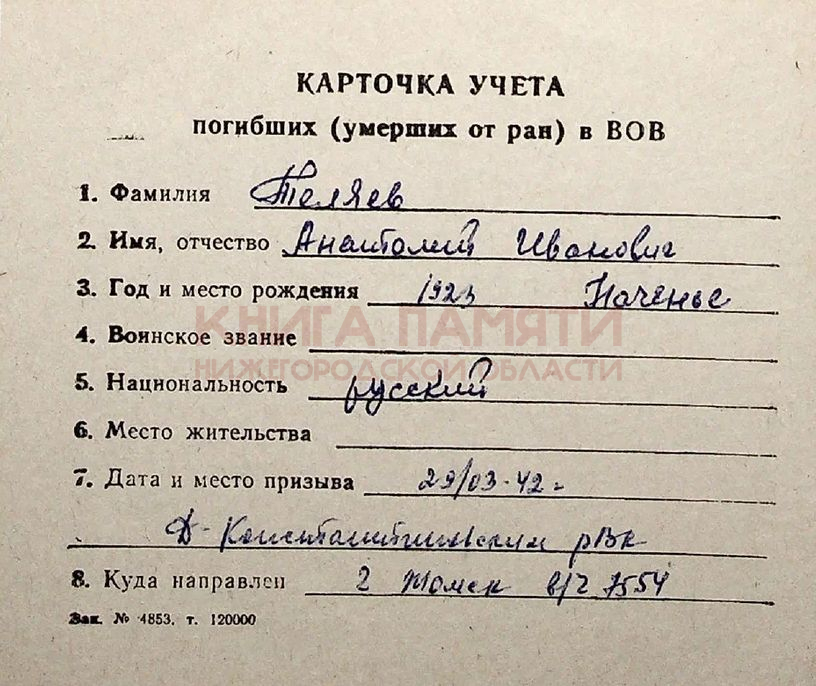 КАРТОЧКА УЧЕТА
погибших (умерших от ран) в ВОВ
1. Фамилия Теляев
2. Имя, отчество Анатолий Иванович
3. Год и место рождения 1923 Наченье
КНИГА ПАМЯТИ
4. Воинское звание
НИЖЕГОРОДСКОЙ ОБЛАСТИ
5. Национальность русский
6. Место жительства
7. Дата и место призыва 29/03-42г
Д-Константиновским рвк
8. Куда направлен г Томск в/ч 7554
Зак. № 4853. т. 120000